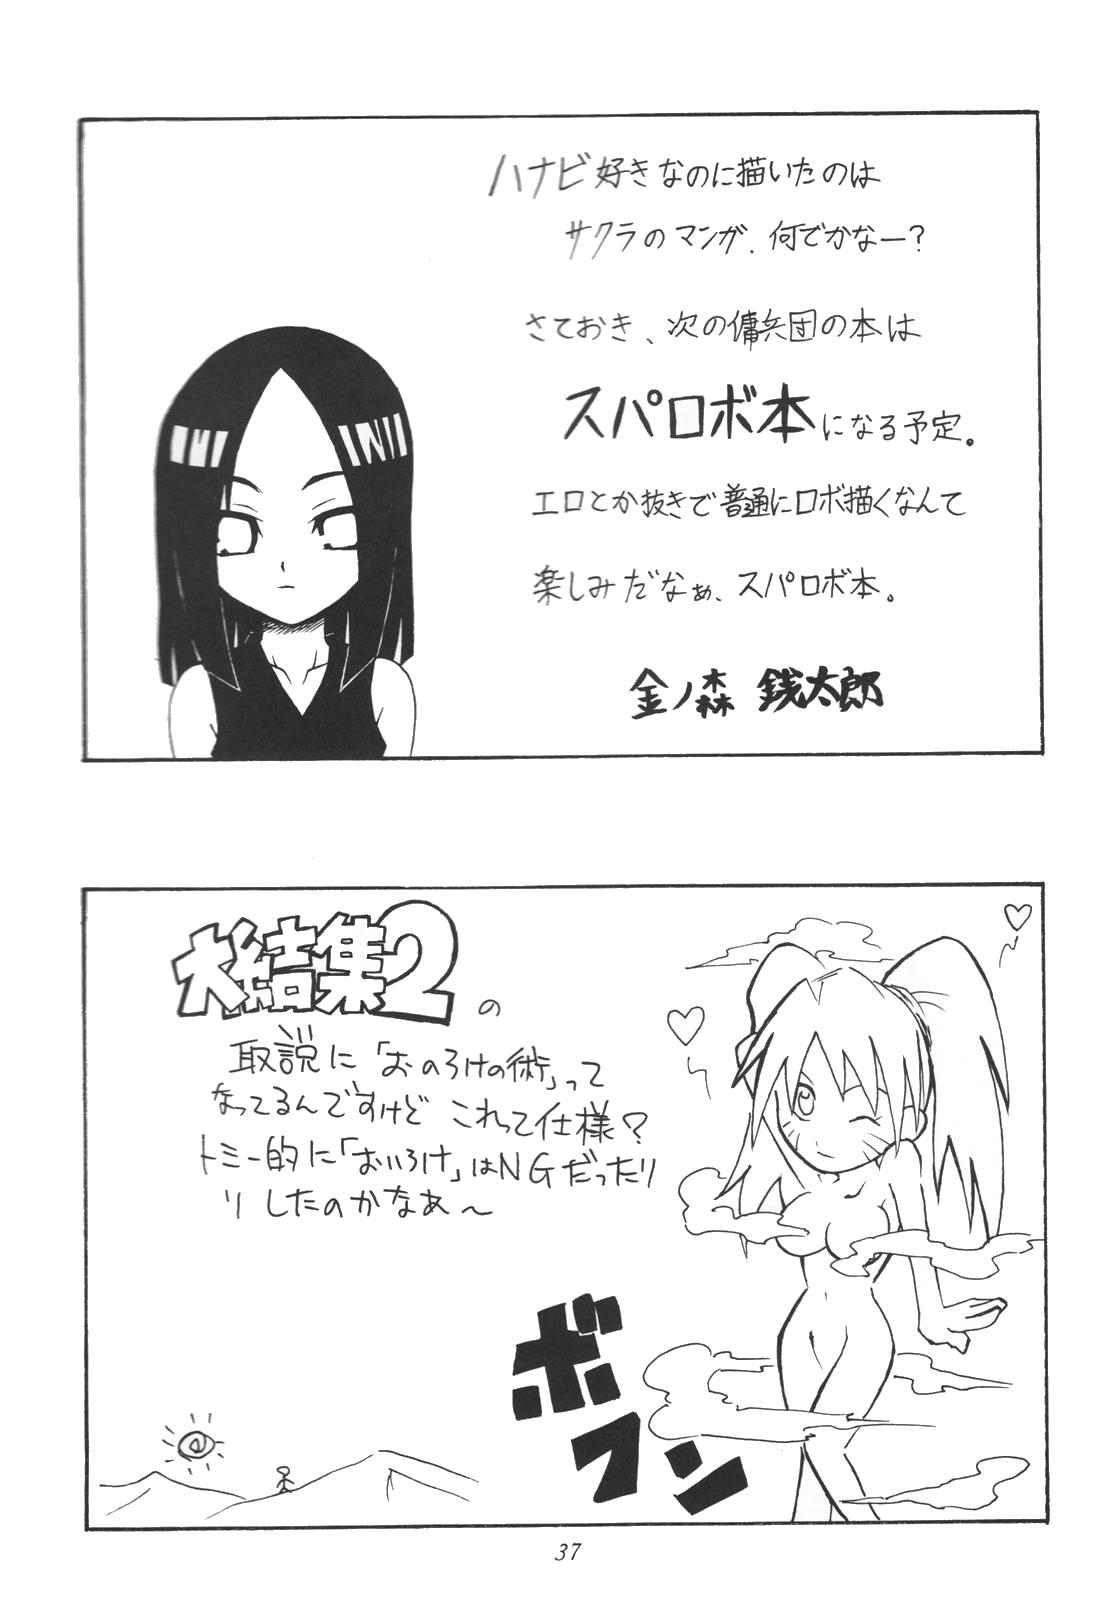 ハナビ好きなのに描いたのは
サクラのマンガ.何でかなー?
さておき、次の傭兵団の本は
スパロボ本になる予定。
エロとか抜きで普通にロボ描くなんて
楽しみだなぁ、スパロボ本。
金ノ森 銭太郎
大結集2の
取説に「おのろけの術」って
なってるんですけど これって仕様?
トミー的に「おいろけ」はNGだったり
リしたのかなあ〜
ボフン
37